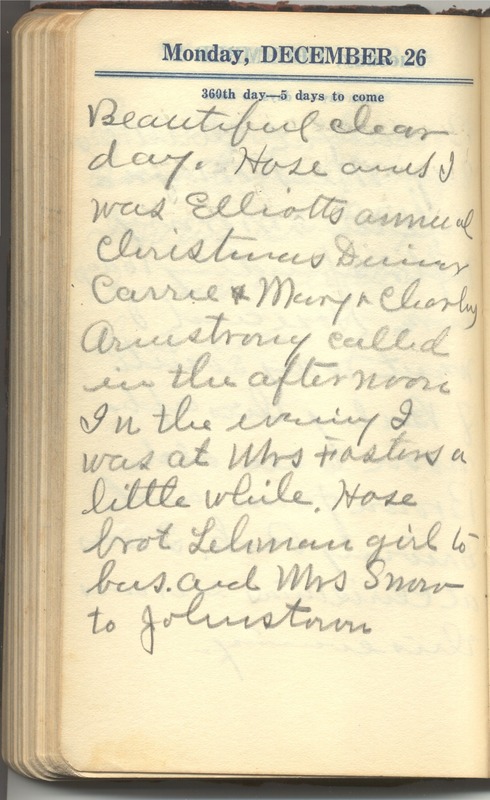 Monday, DECEMBER 26
360th day—5 days to come
Beautiful clear
day. Hose and I
was Elliotts annual
Christmas Dinner
Carrie & Mary & Charley
Armstrong called
in the afternoon
In the evening I
was at Mrs Fosters a
little while. Hose
brot Lehman girl to
bus. and Mrs Snow
to Johnstown